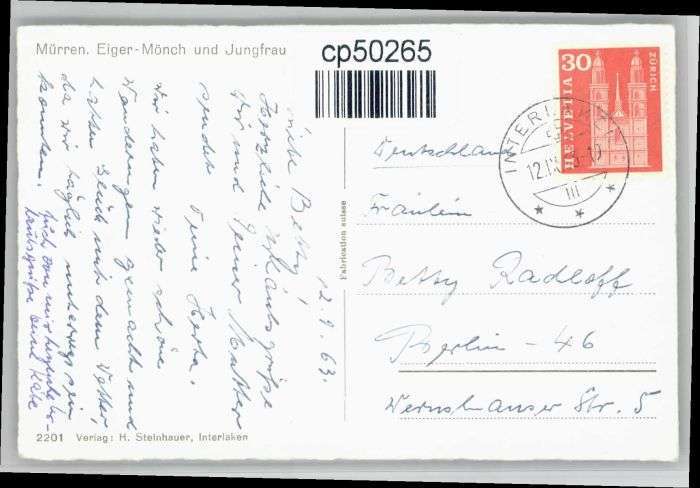 Mürren. Eiger-Mönch und Jungfrau
cp50265
12.9.63.
Liebe Betty!
Herzliche Urlaubsgrüße
Dir und Deiner Mutter
sendet Deine Herta.
Wir haben wieder schöne
Wanderungen gemacht und
hatten Glück mit dem Wetter,
da wir täglich unterwegs sein
konnten. Auch von mir
Urlaubsgrüße Käte
Fabrication suisse
30
HELVETIA
ZÜRICH
INTERLAKEN
12.IX.63-19
Deutschland
Fräulein
Betty Radloff
Berlin - 46
Wernshauser Str. 5
2201 Verlag: H. Steinhauer, Interlaken